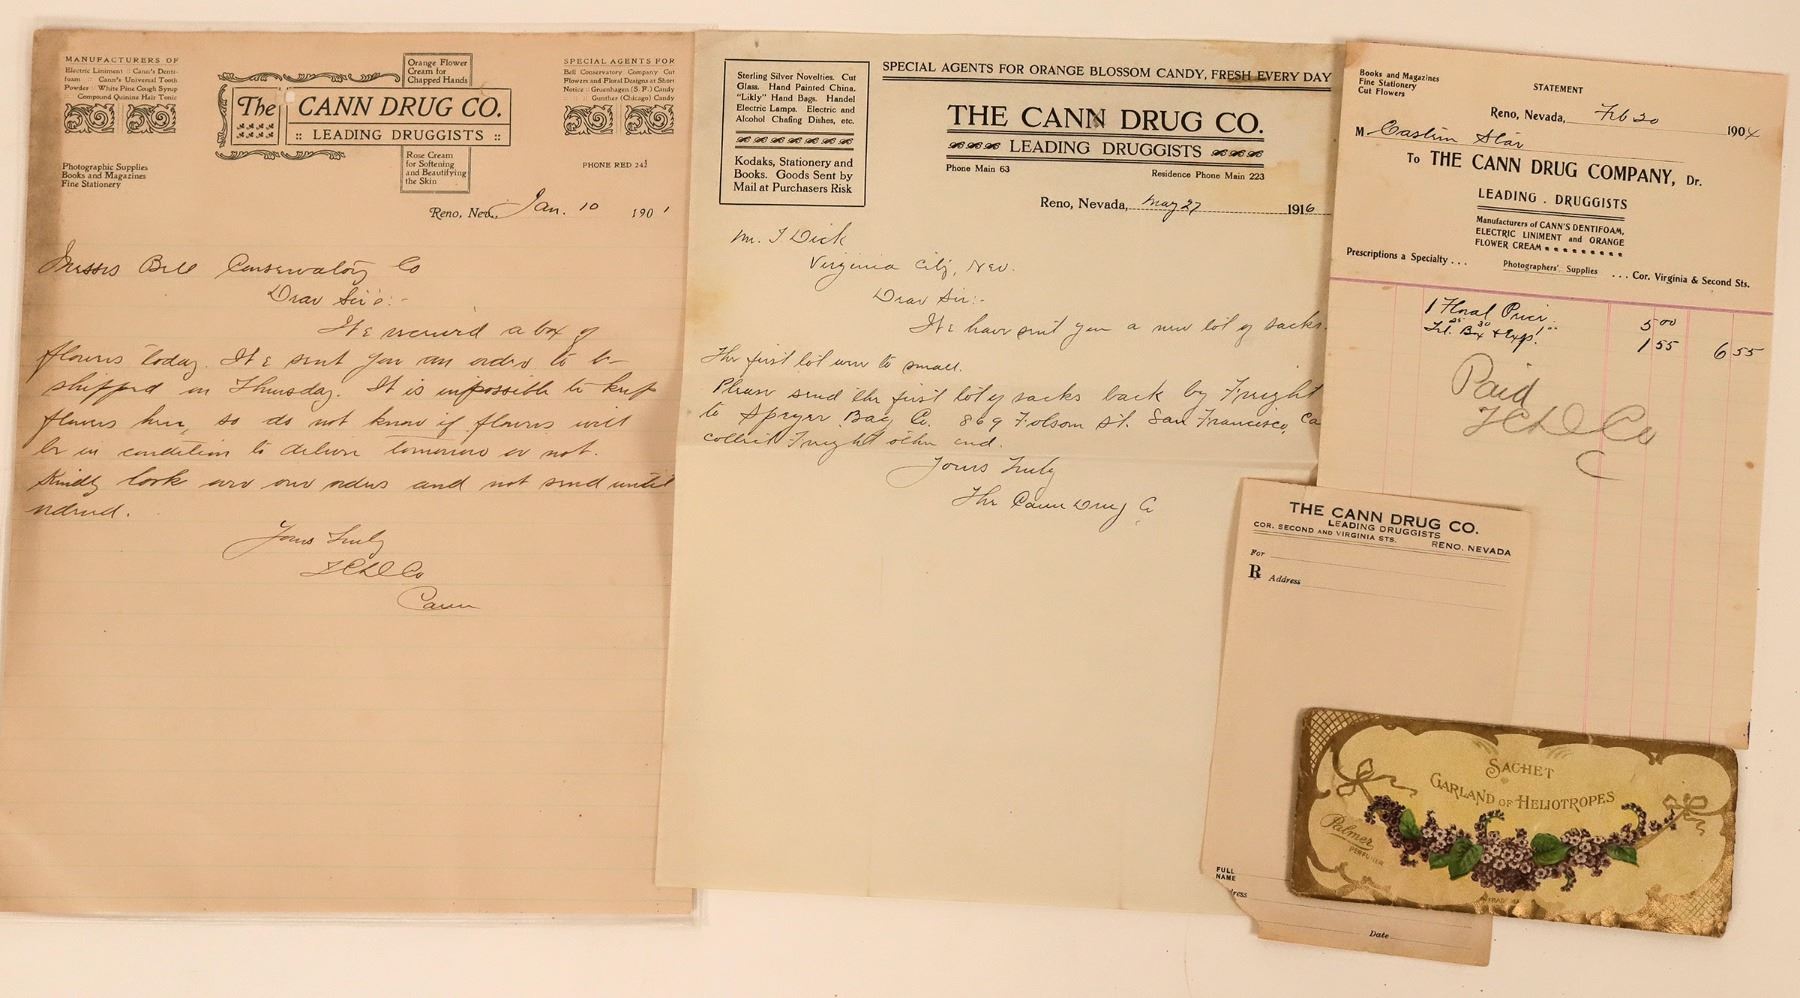 MANUFACTURERS OF
Electric Liniment :: Cann's Denti-
foam :: Cann's Universal Tooth
Powder :: White Pine Cough Syrup
Compound Quinine Hair Tonic
Photographic Supplies
Books and Magazines
Fine Stationery
Orange Flower
Cream for
Chapped Hands
The CANN DRUG CO.
:: LEADING DRUGGISTS ::
Rose Cream
for Softening
and Beautifying
the Skin
SPECIAL AGENTS FOR
Bell Conservatory Company Cut
Flowers and Floral Designs at Short
Notice :: Gruenhagen (S. F.) Candy
:: Gunther (Chicago) Candy
PHONE RED 241
Reno, Nev., Jan. 10 1901
Messrs Bell Conservatory Co
Dear Sir's:-
We received a box of
flowers today. We sent you an order to be
shipped on Thursday. It is impossible to keep
flowers here, so do not know if flowers will
be in condition to deliver tomorrow or not.
Kindly look over our orders and not send until
ordered.
Yours Truly
T C D Co
Cann
Sterling Silver Novelties. Cut
Glass. Hand Painted China.
"Likly" Hand Bags. Handel
Electric Lamps. Electric and
Alcohol Chafing Dishes, etc.
Kodaks, Stationery and
Books. Goods Sent by
Mail at Purchasers Risk
SPECIAL AGENTS FOR ORANGE BLOSSOM CANDY, FRESH EVERY DAY
THE CANN DRUG CO.
LEADING DRUGGISTS
Phone Main 63
Residence Phone Main 223
Reno, Nevada, May 27 1916
Mr. T Dick
Virginia City, Nev.
Dear Sir:-
We have sent you a new lot of sacks.
The first lot were to small.
Please send the first lot of sacks back by Freight
to Speyer Bag Co. 869 Folsom St. San Francisco, Ca
collect Freight other end.
Yours Truly
The Cann Drug Co
Books and Magazines
Fine Stationery
Cut Flowers
STATEMENT
Reno, Nevada, Feb 20 1904
M Eastern Star
To THE CANN DRUG COMPANY, Dr.
LEADING . DRUGGISTS
Manufacturers of CANN'S DENTIFOAM,
ELECTRIC LINIMENT and ORANGE
FLOWER CREAM
Prescriptions a Specialty . . .
Photographers' Supplies . . . Cor. Virginia & Second Sts.
1 Floral Piece 5 00
Box & Exp. 1 55 6 55
Paid
T C D Co
THE CANN DRUG CO.
LEADING DRUGGISTS
COR. SECOND AND VIRGINIA STS. RENO, NEVADA
For
R Address
FULL
NAME
ress
Date
SACHET
GARLAND OF HELIOTROPES
Palmer
PERFUMER